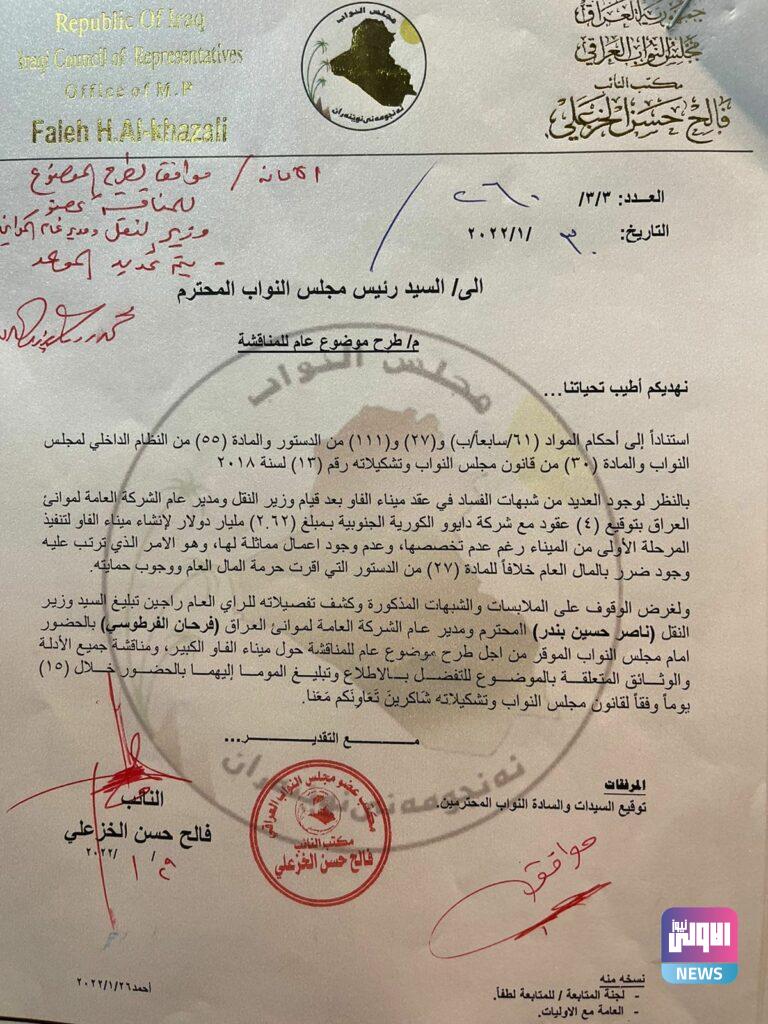 Republic Of Iraq
Iraqi Council of Representatives
Office of M.P
Faleh H.Al-khazali
مجلس النواب
ئه نجومه نی نوێنه ران
جمهورية العراق
مجلس النواب العراقي
مكتب النائب
فالح حسن الخزعلي
العدد: ٣/٣/ ٢٦٠
التاريخ: ٣٠ /٢٠٢٢/١
الامانة / موافق لطرح الموضوع
للمناقشة بحضور
وزير النقل ومدير عام الموانئ
- يتم تحديد الموعد
الى/ السيد رئيس مجلس النواب المحترم
م/ طرح موضوع عام للمناقشة
نهديكم أطيب تحياتنا...
استناداً إلى أحكام المواد (٦١/سابعاً/ب) و(٢٧) و(١١١) من الدستور والمادة (٥٥) من النظام الداخلي لمجلس
النواب والمادة (٣٠) من قانون مجلس النواب وتشكيلاته رقم (١٣) لسنة ٢٠١٨
بالنظر لوجود العديد من شبهات الفساد في عقد ميناء الفاو بعد قيام وزير النقل ومدير عام الشركة العامة لموانئ
العراق بتوقيع (٤) عقود مع شركة دايوو الكورية الجنوبية بمبلغ (٢.٦٢) مليار دولار لإنشاء ميناء الفاو لتنفيذ
المرحلة الأولى من الميناء رغم عدم تخصصها، وعدم وجود اعمال مماثلة لها، وهو الامر الذي ترتب عليه
وجود ضرر بالمال العام خلافاً للمادة (٢٧) من الدستور التي اقرت حرمة المال العام ووجوب حمايته.
ولغرض الوقوف على الملابسات والشبهات المذكورة وكشف تفصيلاته للراي العام راجين تبليغ السيد وزير
النقل (ناصر حسين بندر) المحترم ومدير عام الشركة العامة لموانئ العراق (فرحان الفرطوسي) بالحضور
امام مجلس النواب الموقر من اجل طرح موضوع عام للمناقشة حول ميناء الفاو الكبير، ومناقشة جميع الأدلة
والوثائق المتعلقة بالموضوع للتفضل بالاطلاع وتبليغ الموما إليهما بالحضور خلال (١٥)
يوماً وفقاً لقانون مجلس النواب وتشكيلاته شاكرينَ تَعاونَكم مَعَنا.
مـــع التقديـــر...
المرفقات
توقيع السيدات والسادة النواب المحترمين.
النائب
فالح حسن الخزعلي
٢٠٢٢/ ١ /
مكتب عضو مجلس النواب العراقي
مكتب النائب
فالح حسن الخزعلي
موافق
نسخه منه
- لجنة المتابعة / للمتابعة لطفاً.
- العامة مع الاوليات.
أحمد ٢٠٢٢/١/٢٦
الاولى نيوز
NEWS